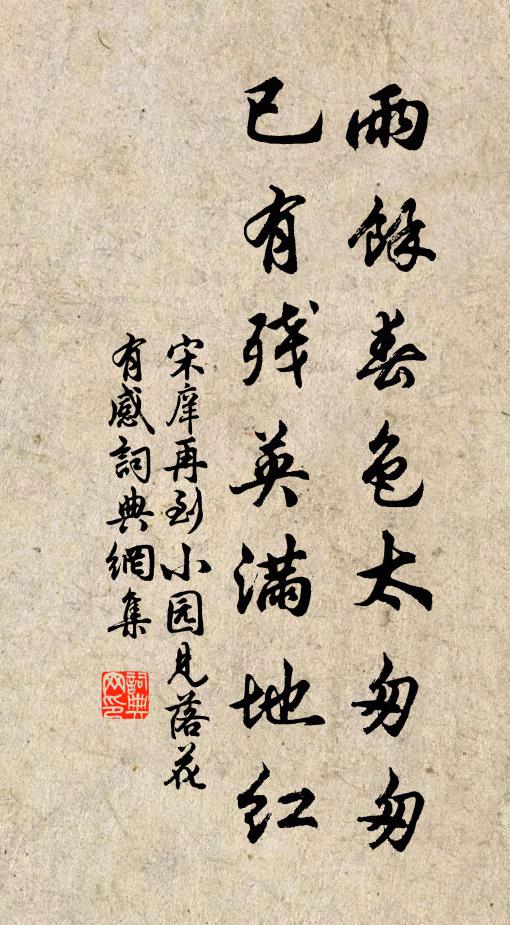 雨餘春色太匆匆
已有残英满地红
宋庠再到小园见落花
有感詞典網集
詞典網印